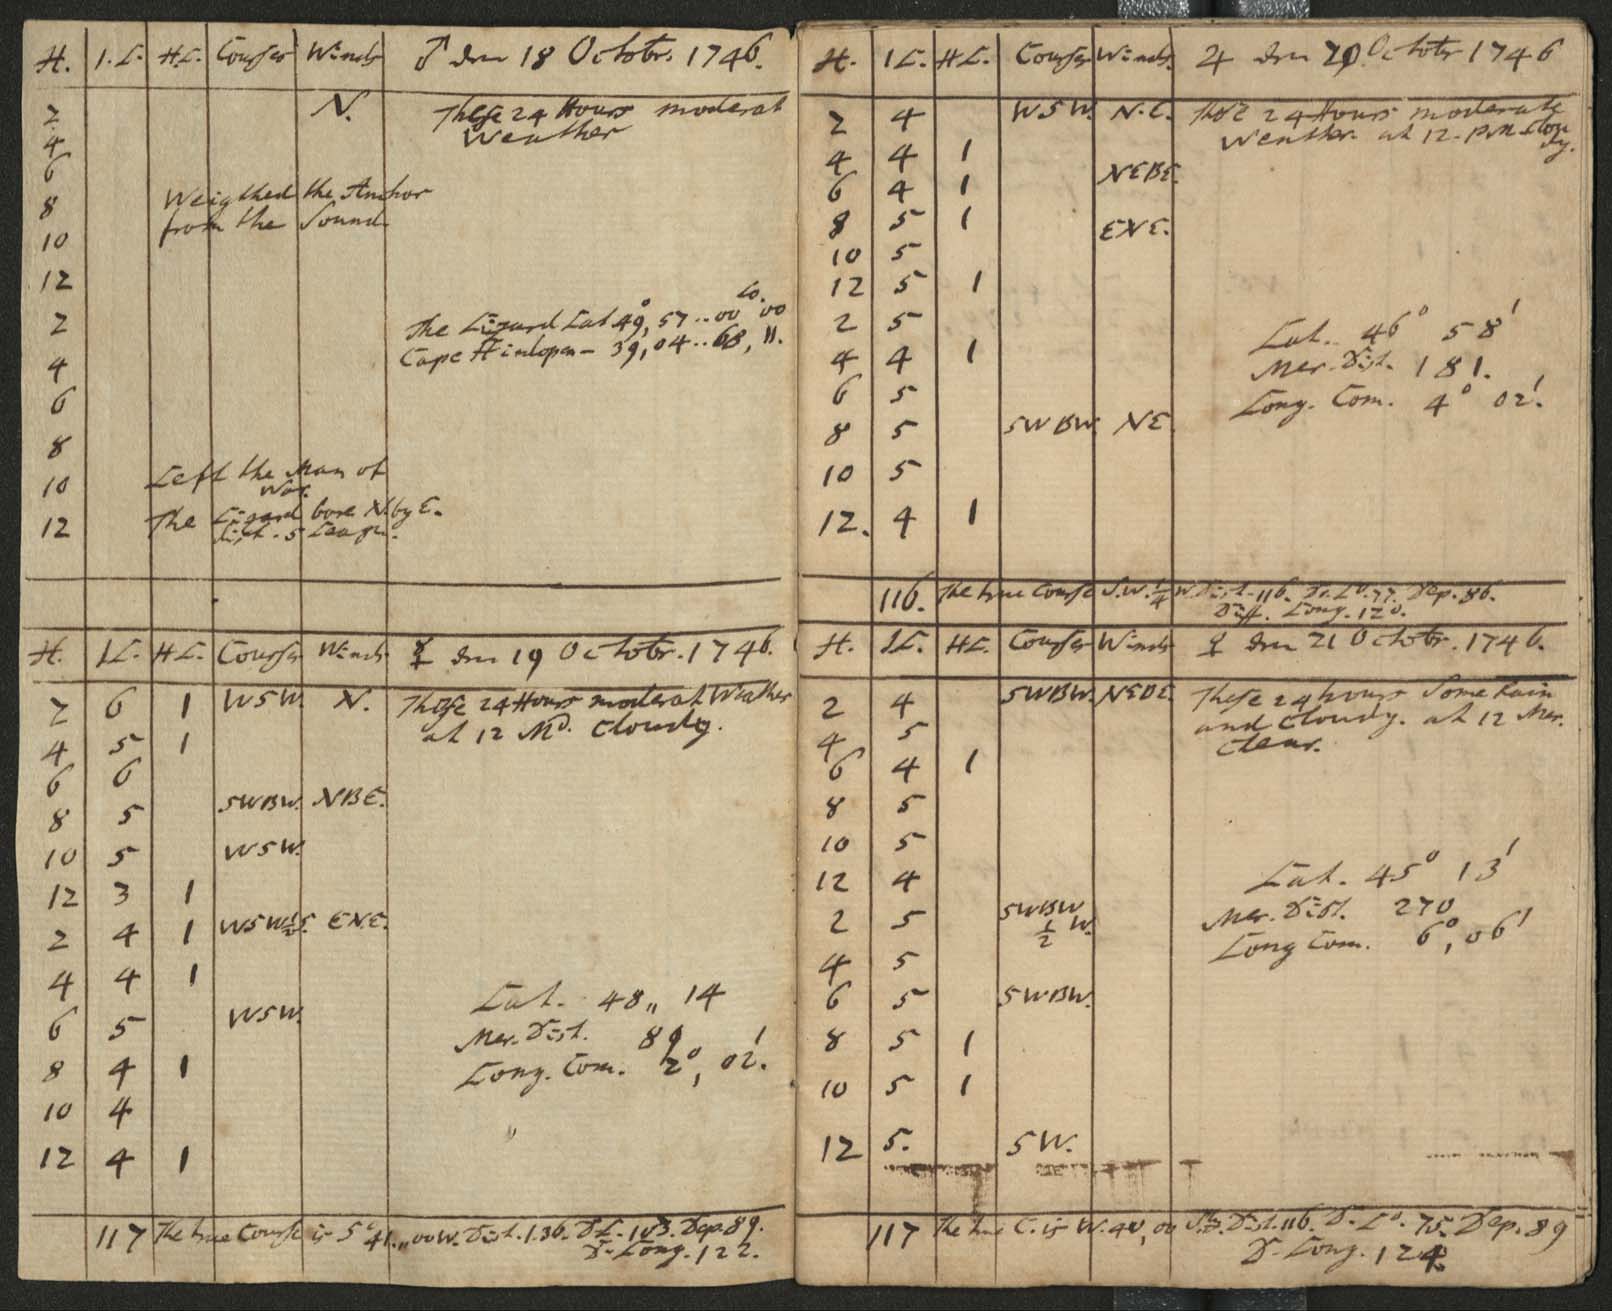 H. 1.L. H.L. Courses Winds ♂ den 18 Octobr. 1746.
2 N. These 24 Hours moderat
4 Weather
6
8 Weighed the Anchor
from the Sound
10
12
Lo.
2 The Lizard Lat 49°, 57 .. 00° 00
Cape Hinlopen - 39, 04 .. 68, 11.
4
6
8
10 Left the Man of
War.
12 The Lizard bore N. by E.
dist. 5 Leagu.
H. 1L. HL. Courses Winds ☿ den 19 Octobr. 1746.
2 6 1 WSW. N. These 24 Hours moderat Weather
4 5 1 at 12 Md. Cloudy.
6 6
8 5 SWBW. NBE.
10 5 WSW.
12 3 1
2 4 1 WSW½S. ENE.
4 4 1 Lat. 48,, 14
6 5 WSW. Mer. Dist. 89
8 4 1 Long. Com. 2°, 02'.
10 4
12 4 1
117 The true Course is S° 41.,,00 W. Dist. 136. D L. 103. Dep. 89.
D. Long. 122.
H. 1L. HL. Courses Winds. ♃ den 20 Octobr 1746
2 4 WSW. N.E. These 24 Hours moderate
Weather. at 12. P.M Clou
dy.
4 4 1 NEBE.
6 4 1
8 5 1 ENE.
10 5
12 5 1
2 5 Lat. 46° 58'
4 4 1 Mer. Dist. 181.
6 5 Long. Com. 4° 02'.
8 5 SWBW. NE.
10 5
12. 4 1
116. The true Course S.W. ¼ W. Dist. 116. D. L°. 77. Dep. 86.
Diff. Long. 120.
H. 1L. HL. Courses Winds ♀ den 21 Octobr. 1746.
2 4 SWBW. NEBE. These 24 hours Some Rain
4 5 and Cloudy. at 12 Mer.
6 4 1 Clear.
8 5
10 5
12 4 Lat. 45° 13'
2 5 SWBW Mer. Dist. 270
½ W.
4 5 Long Com. 6°, 06'
6 5 SWBW.
8 5 1
10 5 1
12 5. SW.
117 The true C. is W. 40, 00 Dist. 116. D. L°. 75. Dep. 89
D. Long. 124.